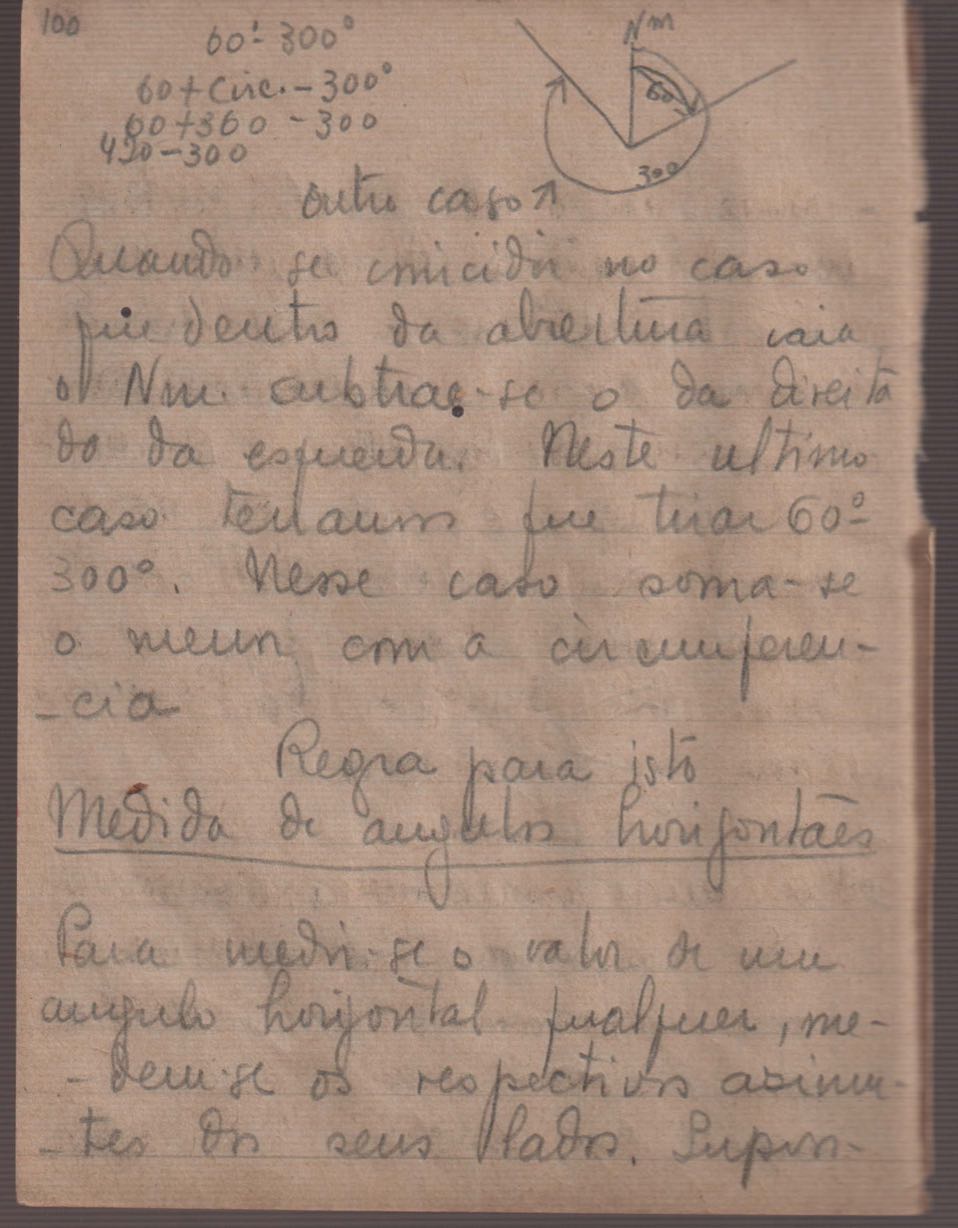 100
60° - 300°
60 + Circ. - 300°
60 + 360 - 300
420 - 300
Nm
60
300
outro caso ↗
Quando se coincidir no caso
que dentro da abertura caia
o Nm. subtrae-se o da direita
do da esquerda. Neste ultimo
caso teriamos que tirar 60° -
300°. Nesse caso soma-se
o menor com a circumferen-
-cia
Regra para isto
Medida de angulos horizontães
Para medir-se o valor de um
angulo horizontal qualquer, me-
-dem-se os respectivos azimu-
-tes dos seus lados. Supon-